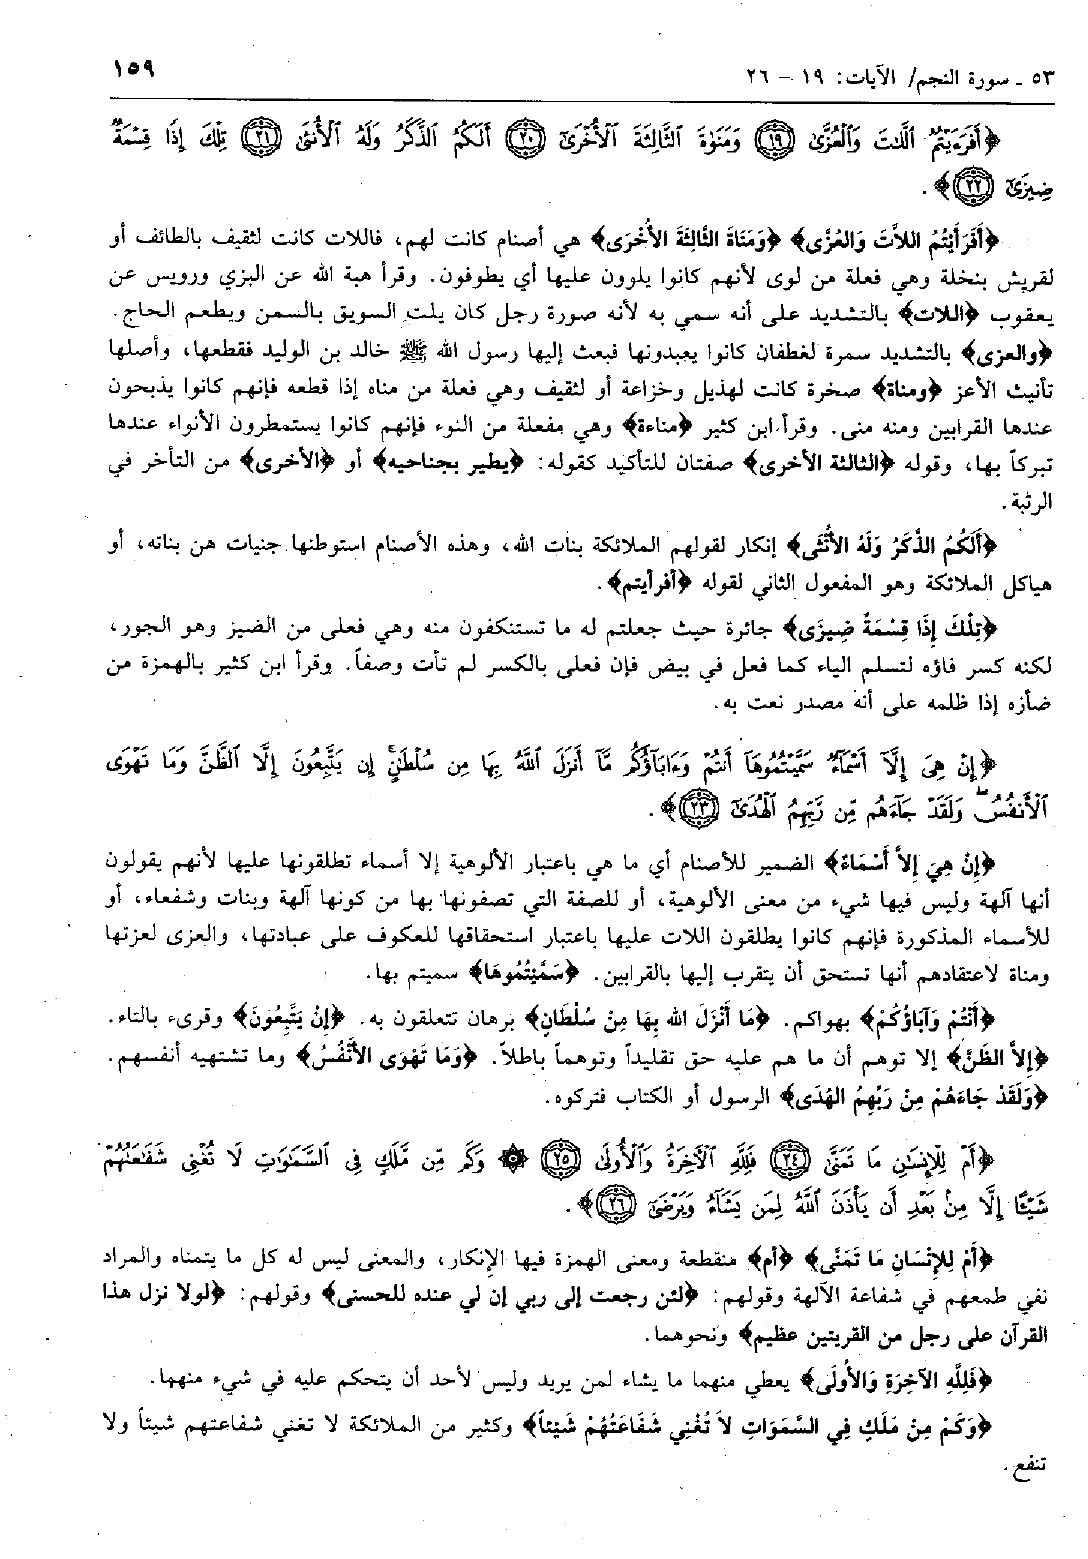 ٥٣ ـ سورة النجم/ الآيات: ١٩ – ٢٦ ١٥٩
﴿أَفَرَءَيْتُمُ ٱللَّـٰتَ وَٱلْعُزَّىٰ ۝١٩ وَمَنَوٰةَ ٱلثَّالِثَةَ ٱلْأُخْرَىٰٓ ۝٢٠ أَلَكُمُ ٱلذَّكَرُ وَلَهُ ٱلْأُنثَىٰ ۝٢١ تِلْكَ إِذًا قِسْمَةٌ
ضِيزَىٰٓ ۝٢٢﴾.
﴿أَفَرَأَيْتُمُ اللاَّتَ وَالعُزَّى﴾ ﴿وَمَنَاةَ الثَّالِثَةَ الأُخْرَى﴾ هي أصنام كانت لهم، فاللات كانت لثقيف بالطائف أو
لقريش بنخلة وهي فعلة من لوى لأنهم كانوا يلوون عليها أي يطوفون. وقرأ هبة الله عن البزي ورويس عن
يعقوب ﴿اللات﴾ بالتشديد على أنه سمي به لأنه صورة رجل كان يلت السويق بالسمن ويطعم الحاج.
﴿والعزى﴾ بالتشديد سمرة لغطفان كانوا يعبدونها فبعث إليها رسول الله ﷺ خالد بن الوليد فقطعها، وأصلها
تأنيث الأعز ﴿ومناة﴾ صخرة كانت لهذيل وخزاعة أو لثقيف وهي فعلة من مناه إذا قطعه فإنهم كانوا يذبحون
عندها القرابين ومنه منى. وقرأ ابن كثير ﴿مناءة﴾ وهي مفعلة من النوء فإنهم كانوا يستمطرون الأنواء عندها
تبركاً بها، وقوله ﴿الثالثة الأخرى﴾ صفتان للتأكيد كقوله: ﴿يطير بجناحيه﴾ أو ﴿الأخرى﴾ من التأخر في
الرتبة.
﴿أَلَكُمُ الذَّكَرُ وَلَهُ الأُنْثَى﴾ إنكار لقولهم الملائكة بنات الله، وهذه الأصنام استوطنها جنيات هن بناته، أو
هياكل الملائكة وهو المفعول الثاني لقوله ﴿أفرأيتم﴾.
﴿تِلْكَ إِذَا قِسْمَةٌ ضِيزَى﴾ جائرة حيث جعلتم له ما تستنكفون منه وهي فعلى من الضيز وهو الجور،
لكنه كسر فاؤه لتسلم الياء كما فعل في بيض فإن فعلى بالكسر لم تأت وصفاً. وقرأ ابن كثير بالهمزة من
ضأزه إذا ظلمه على أنه مصدر نعت به.
﴿إِنْ هِىَ إِلَّآ أَسْمَآءٌ سَمَّيْتُمُوهَآ أَنتُمْ وَءَابَآؤُكُم مَّآ أَنزَلَ ٱللَّهُ بِهَا مِن سُلْطَـٰنٍ ۚ إِن يَتَّبِعُونَ إِلَّا ٱلظَّنَّ وَمَا تَهْوَى
ٱلْأَنفُسُ ۖ وَلَقَدْ جَآءَهُم مِّن رَّبِّهِمُ ٱلْهُدَىٰٓ ۝٢٣﴾.
﴿إِنْ هِيَ إِلاَّ أَسْمَاءٌ﴾ الضمير للأصنام أي ما هي باعتبار الألوهية إلا أسماء تطلقونها عليها لأنهم يقولون
أنها آلهة وليس فيها شيء من معنى الألوهية، أو للصفة التي تصفونها بها من كونها آلهة وبنات وشفعاء، أو
للأسماء المذكورة فإنهم كانوا يطلقون اللات عليها باعتبار استحقاقها للعكوف على عبادتها، والعزى لعزتها
ومناة لاعتقادهم أنها تستحق أن يتقرب إليها بالقرابين. ﴿سَمَّيْتُمُوهَا﴾ سميتم بها.
﴿أَنْتُمْ وَآبَاؤُكُمْ﴾ بهواكم. ﴿مَا أَنْزَلَ الله بِهَا مِنْ سُلْطَانٍ﴾ برهان تتعلقون به. ﴿إِنْ يَتَّبِعُونَ﴾ وقرىء بالتاء.
﴿إِلاَّ الظَّنَّ﴾ إلا توهم أن ما هم عليه حق تقليداً وتوهماً باطلاً. ﴿وَمَا تَهْوَى الأَنْفُسُ﴾ وما تشتهيه أنفسهم.
﴿وَلَقَدْ جَاءَهُمْ مِنْ رَبِّهِمُ الهُدَى﴾ الرسول أو الكتاب فتركوه.
﴿أَمْ لِلْإِنسَـٰنِ مَا تَمَنَّىٰ ۝٢٤ فَلِلَّهِ ٱلْـَٔاخِرَةُ وَٱلْأُولَىٰ ۝٢٥ ۞ وَكَم مِّن مَّلَكٍ فِى ٱلسَّمَـٰوَٰتِ لَا تُغْنِى شَفَـٰعَتُهُمْ
شَيْـًٔا إِلَّا مِنۢ بَعْدِ أَن يَأْذَنَ ٱللَّهُ لِمَن يَشَآءُ وَيَرْضَىٰٓ ۝٢٦﴾.
﴿أَمْ لِلإِنْسَانِ مَا تَمَنَّى﴾ ﴿أم﴾ منقطعة ومعنى الهمزة فيها الإنكار، والمعنى ليس له كل ما يتمناه والمراد
نفي طمعهم في شفاعة الآلهة وقولهم: ﴿لئن رجعت إلى ربي إن لي عنده للحسنى﴾ وقولهم: ﴿لولا نزل هذا
القرآن على رجل من القريتين عظيم﴾ ونحوهما.
﴿فَلِلَّهِ الآخِرَةُ وَالأُولَى﴾ يعطي منهما ما يشاء لمن يريد وليس لأحد أن يتحكم عليه في شيء منهما.
﴿وَكَمْ مِنْ مَلَكٍ فِي السَّمَوَاتِ لاَ تُغْنِي شَفَاعَتُهُمْ شَيْئاً﴾ وكثير من الملائكة لا تغني شفاعتهم شيئاً ولا
تنفع.